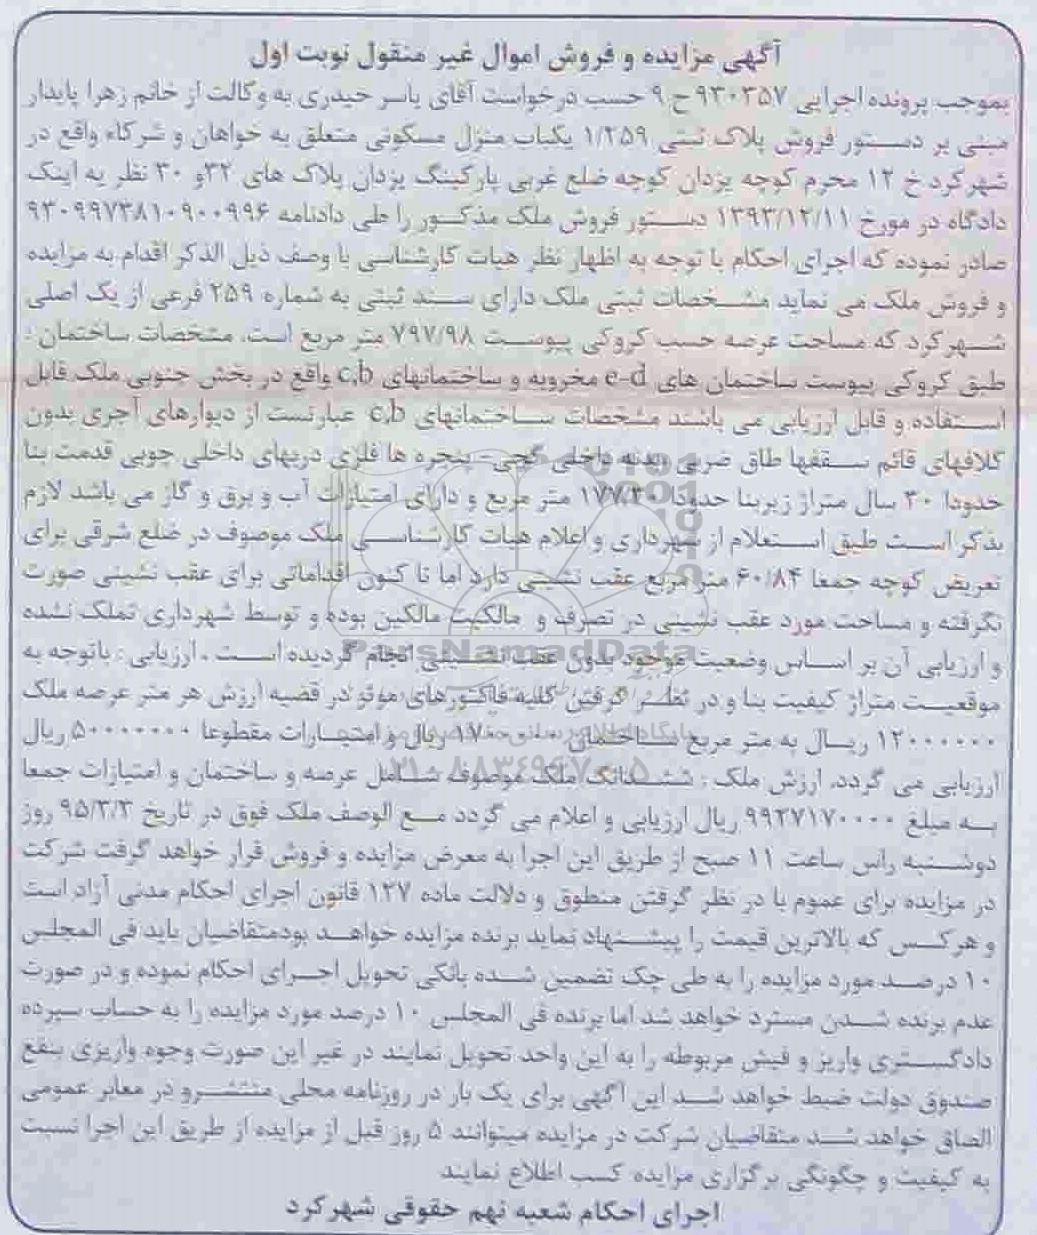 آگهی مزایده و فروش اموال غیر منقول نوبت اول
بموجب پرونده اجرایی ۹۳۰۳۵۷ ح ۹ حسب درخواست آقای یاسر حیدری به وکالت از خانم زهرا پایدار
مبنی بر دستور فروش پلاک ثبتی ۱/۲۵۹ یکباب منزل مسکونی متعلق به خواهان و شرکاء واقع در
شهرکرد خ ۱۲ محرم کوچه یزدان کوچه ضلع غربی پارکینگ یزدان پلاک های ۳۲ و ۳۰ نظر به اینک
دادگاه در مورخ ۱۳۹۳/۱۲/۱۱ دستور فروش ملک مذکور را طی دادنامه ۹۳۰۹۹۷۳۸۱۰۹۰۰۹۹۶
صادر نموده که اجرای احکام با توجه به اظهار نظر هیات کارشناسی با وصف ذیل الذکر اقدام به مزایده
و فروش ملک می نماید مشخصات ثبتی ملک دارای سند ثبتی به شماره ۲۵۹ فرعی از یک اصلی
شهرکرد که مساحت عرصه حسب کروکی پیوست ۷۹۷/۹۸ متر مربع است، مشخصات ساختمان :
طبق کروکی پیوست ساختمان های e-d مخروبه و ساختمانهای c,b واقع در بخش جنوبی ملک قابل
استفاده و قابل ارزیابی می باشند مشخصات ساختمانهای c,b عبارتست از دیوارهای آجری بدون
کلافهای قائم سقفها طاق ضربی بدنه داخلی گچی- پنجره ها فلزی دربهای داخلی چوبی قدمت بنا
حدودا ۳۰ سال متراژ زیربنا حدودا ۱۷۷/۳۰ متر مربع و دارای امتیازات آب و برق و گاز می باشد لازم
بذکر است طبق استعلام از شهرداری و اعلام هیات کارشناسی ملک موصوف در ضلع شرقی برای
تعریض کوچه جمعا ۶۰/۸۴ متر مربع عقب نشینی دارد اما تا کنون اقداماتی برای عقب نشینی صورت
نگرفته و مساحت مورد عقب نشینی در تصرف و مالکیت مالکین بوده و توسط شهرداری تملک نشده
و ارزیابی آن بر اساس وضعیت موجود بدون عقب نشینی انجام گردیده است . ارزیابی : باتوجه به
موقعیت متراژ کیفیت بنا و در نظر گرفتن کلیه فاکتورهای موثر در قضیه ارزش هر متر عرصه ملک
۱۲۰۰۰۰۰۰ ریال به متر مربع ساختمان ریال و امتیازات مقطوعا ۵۰۰۰۰۰۰۰ ریال
ارزیابی می گردد. ارزش ملک : ششدانگ ملک موصوفه شامل عرصه و ساختمان و امتیازات جمعا
به مبلغ ۹۹۲۷۱۷۰۰۰۰ ریال ارزیابی و اعلام می گردد مع الوصف ملک فوق در تاریخ ۹۵/۳/۳ روز
دوشنبه راس ساعت ۱۱ صبح از طریق این اجرا به معرض مزایده و فروش قرار خواهد گرفت شرکت
در مزایده برای عموم با در نظر گرفتن منطوق و دلالت ماده ۱۲۷ قانون اجرای احکام مدنی آزاد است
و هرکس که بالاترین قیمت را پیشنهاد نماید برنده مزایده خواهد بودمتقاضیان باید فی المجلس
۱۰ درصد مورد مزایده را به طی چک تضمین شده بانکی تحویل اجرای احکام نموده و در صورت
عدم برنده شدن مسترد خواهد شد اما برنده فی المجلس ۱۰ درصد مورد مزایده را به حساب سپرده
دادگستری واریز و فیش مربوطه را به این واحد تحویل نمایند در غیر این صورت وجوه واریزی بنفع
صندوق دولت ضبط خواهد شد این آگهی برای یک بار در روزنامه محلی منتشرو در معابر عمومی
الصاق خواهد شد متقاضیان شرکت در مزایده میتوانند ۵ روز قبل از مزایده از طریق این اجرا نسبت
به کیفیت و چگونگی برگزاری مزایده کسب اطلاع نمایند
اجرای احکام شعبه نهم حقوقی شهرکرد
ParsNamadData